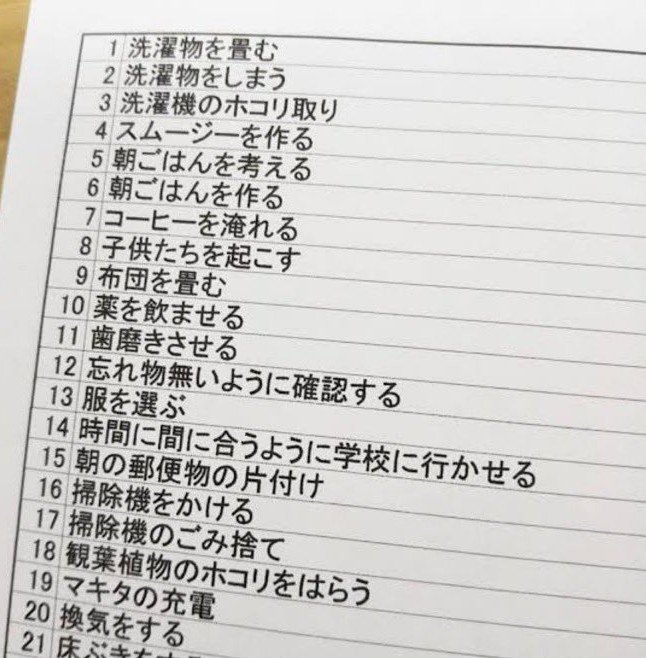 1 洗濯物を畳む
2 洗濯物をしまう
3 洗濯機のホコリ取り
4 スムージーを作る
5 朝ごはんを考える
6 朝ごはんを作る
7 コーヒーを淹れる
8 子供たちを起こす
9 布団を畳む
10 薬を飲ませる
11 歯磨きさせる
12 忘れ物無いように確認する
13 服を選ぶ
14 時間に間に合うように学校に行かせる
15 朝の郵便物の片付け
16 掃除機をかける
17 掃除機のごみ捨て
18 観葉植物のホコリをはらう
19 マキタの充電
20 換気をする
21 床ぶきをす